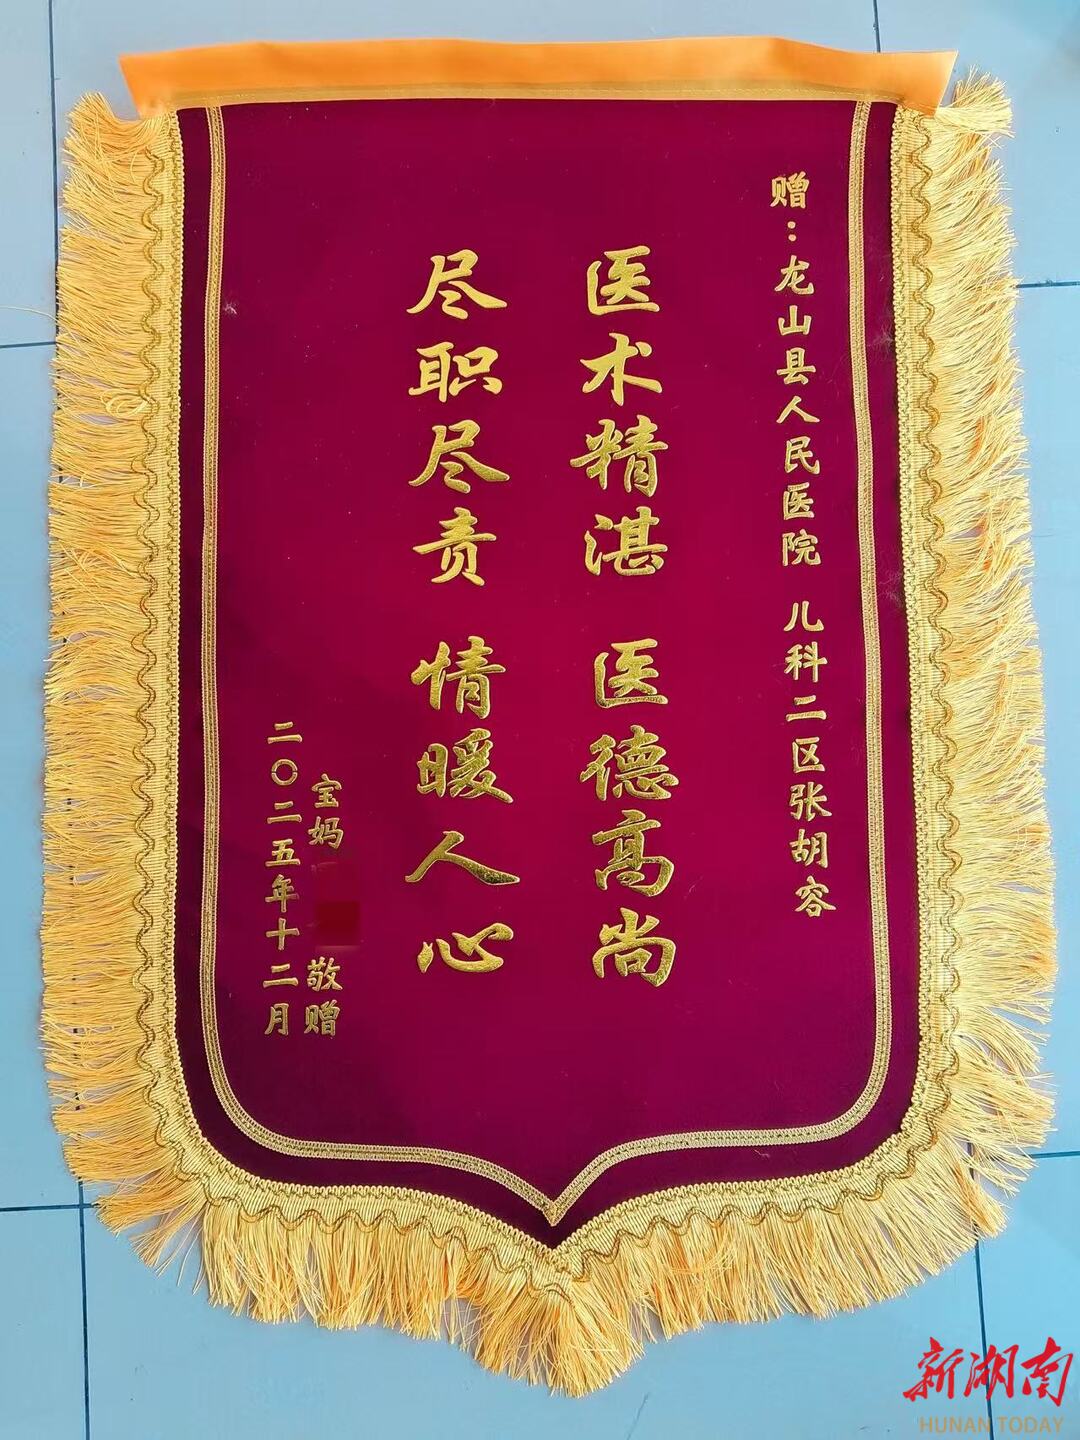 赠：龙山县人民医院 儿科二区张胡容
医术精湛 医德高尚
尽职尽责 情暖人心
宝妈 敬赠
二〇二五年十二月
新湖南
HUNAN TODAY